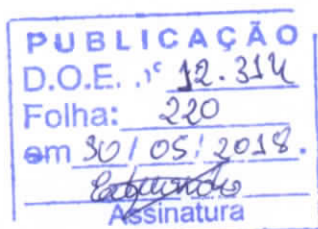 PUBLICAÇÃO
D.O.E. nº 12.314
Folha: 220
em 30 / 05 / 2018.
Assinatura